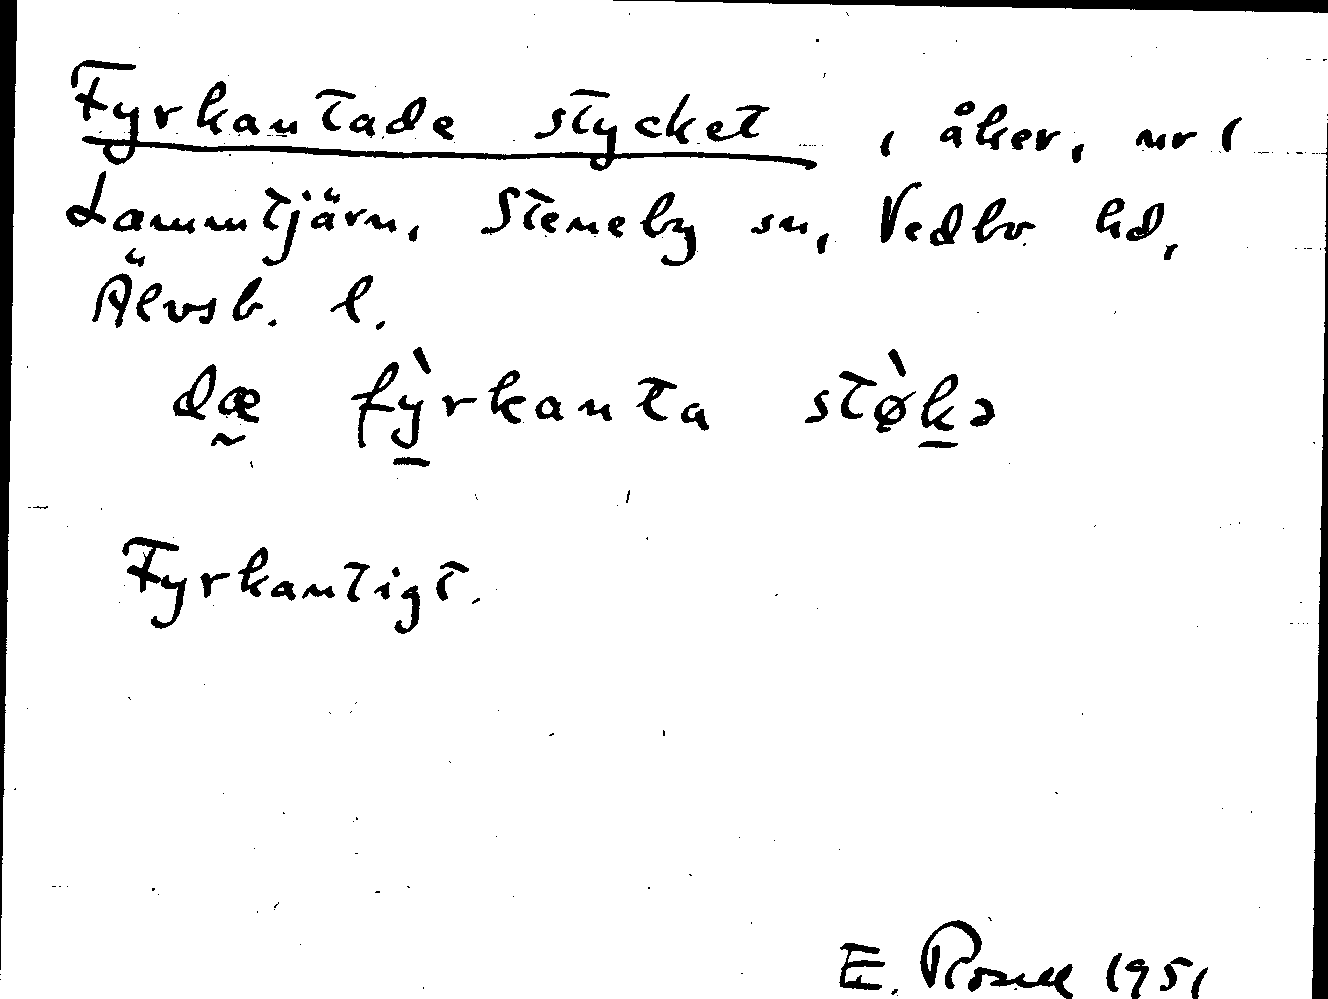 Fyrkantade stycket, åker, nr 1
Lammtjärn, Steneby sn, Vedbo hd,
Älvsb. l.
dæ̰ fỳ̱rkanta stø̀ḵə
Fyrkantigt.
E. Rosell 1951